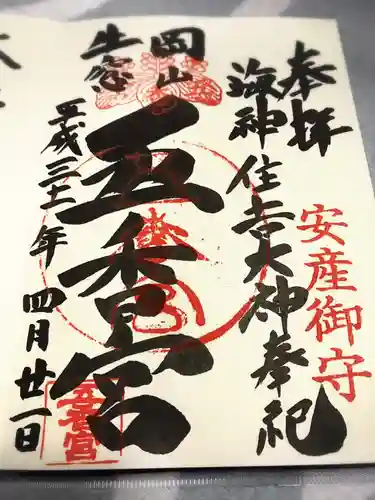 奉拝
安産御守
海神 住吉大神奉祀
岡山
牛窓
五香宮
平成三十一年 四月廿一日
五香宮